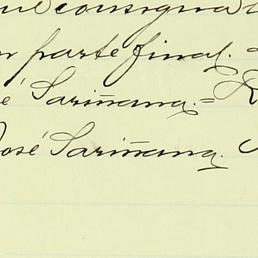 consigna
parte final. =
é Sariñana. = R
José Sariñana.